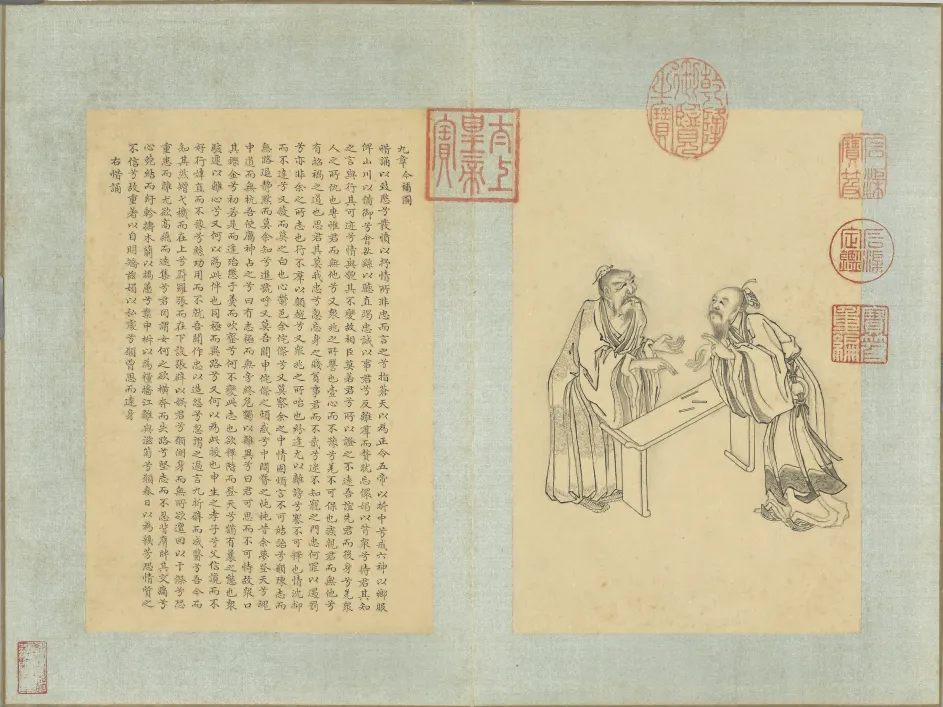 乾隆御覽之寶
石渠寶笈
石渠定鑑
寶笈重編
太上皇帝之寶
九章今補圖
惜誦以致愍兮發憤以抒情所非忠而言之兮指蒼天以為正令五帝以折中兮戒六神以嚮服
俾山川以備御兮會咎繇以聽直竭忠誠以事君兮反離羣而贅肬忘儇媚以背衆兮待君其知
之言與行其可迹兮情與貌其不變故相臣莫若君兮所以證之不遠吾誼先君而後身兮羌衆
人之所仇也專惟君而無他兮又衆兆之所讐也壹心而不豫兮羌不可保也疾親君而無他兮
有招禍之道也思君其莫我忠兮忽忘身之賤貧事君而不貳兮迷不知寵之門忠何罪以遇罰
兮亦非余之所志也行不羣以顛越兮又衆兆之所咍也紛逢尤以離謗兮謇不可釋也情沈抑
而不達兮又蔽而莫之白也心鬱邑余侘傺兮又莫察余之中情固煩言不可結詒兮願陳志而
無路退靜默而莫余知兮進號呼又莫吾聞申侘傺之煩惑兮中悶瞀之忳忳昔余夢登天兮魂
中道而無杭吾使厲神占之兮曰有志極而無旁終危獨以離異兮曰君可思而不可恃故衆口
其鑠金兮初若是而逢殆懲於羹而吹韲兮何不變此志也欲釋階而登天兮猶有曩之態也衆
駭遽以離心兮又何以為此伴也同極而異路兮又何以為此援也申生之孝子兮父信讒而不
好行婞直而不豫兮鮌功用而不就吾聞作忠以造怨兮忽謂之過言九折臂而成醫兮吾今而
知其然矰弋機而在上兮罻羅張而在下設張辟以娛君兮願側身而無所欲儃佪以干傺兮恐
重患而離尤欲高飛而遠集兮君罔謂女何之欲橫奔而失路兮堅志而不忍背膺牉其交痛兮
心鬱結而紆軫擣木蘭以矯蕙兮糳申椒以為糧播江離與滋菊兮願春日以為糗芳恐情質之
不信兮故重著以自明矯茲媚以私處兮願曾思而遠身
右惜誦